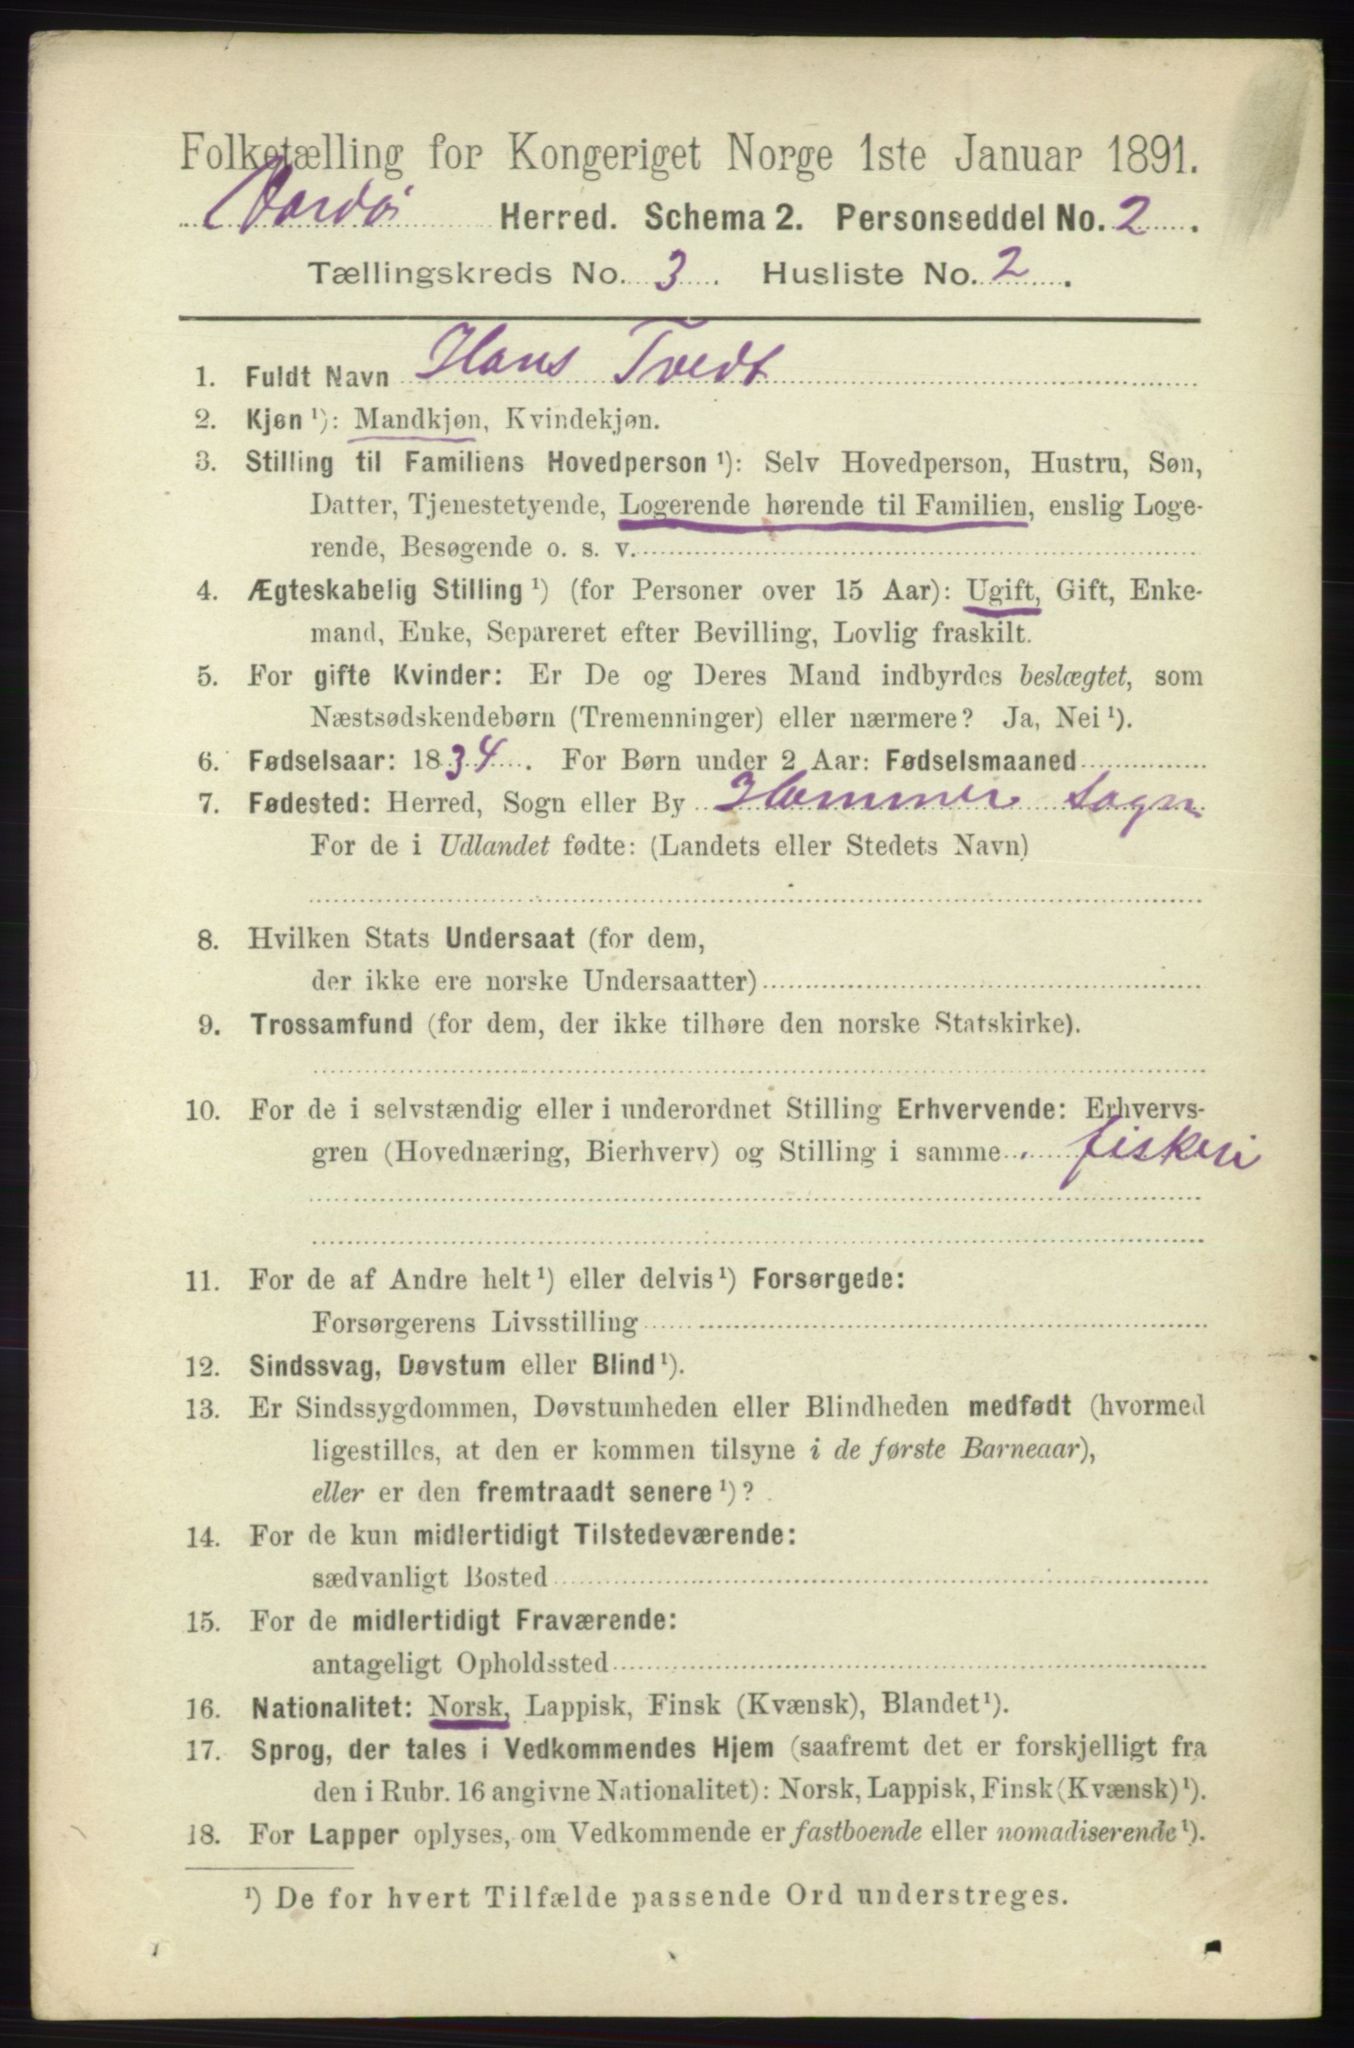 Folketælling for Kongeriget Norge 1ste Januar 1891.
Vardø Herred. Schema 2. Personseddel No. 2.
Tællingskreds No. 3. Husliste No. 2.
1. Fuldt Navn Hans Tvedt
2. Kjøn ¹): Mandkjøn, Kvindekjøn.
3. Stilling til Familiens Hovedperson ¹): Selv Hovedperson, Hustru, Søn,
Datter, Tjenestetyende, Logerende hørende til Familien, enslig Loge-
rende, Besøgende o. s. v.
4. Ægteskabelig Stilling ¹) (for Personer over 15 Aar): Ugift, Gift, Enke-
mand, Enke, Separeret efter Bevilling, Lovlig fraskilt.
5. For gifte Kvinder: Er De og Deres Mand indbyrdes beslægtet, som
Næstsødskendebørn (Tremenninger) eller nærmere? Ja, Nei ¹).
6. Fødselsaar: 1834. For Børn under 2 Aar: Fødselsmaaned
7. Fødested: Herred, Sogn eller By Hammer Sogn
For de i Udlandet fødte: (Landets eller Stedets Navn)
8. Hvilken Stats Undersaat (for dem,
der ikke ere norske Undersaatter)
9. Trossamfund (for dem, der ikke tilhøre den norske Statskirke).
10. For de i selvstændig eller i underordnet Stilling Erhvervende: Erhvervs-
gren (Hovednæring, Bierhverv) og Stilling i samme fiskeri
11. For de af Andre helt ¹) eller delvis ¹) Forsørgede:
Forsørgerens Livsstilling
12. Sindssvag, Døvstum eller Blind ¹).
13. Er Sindssygdommen, Døvstumheden eller Blindheden medfødt (hvormed
ligestilles, at den er kommen tilsyne i de første Barneaar),
eller er den fremtraadt senere ¹)?
14. For de kun midlertidigt Tilstedeværende:
sædvanligt Bosted
15. For de midlertidigt Fraværende:
antageligt Opholdssted
16. Nationalitet: Norsk, Lappisk, Finsk (Kvænsk), Blandet ¹).
17. Sprog, der tales i Vedkommendes Hjem (saafremt det er forskjelligt fra
den i Rubr. 16 angivne Nationalitet): Norsk, Lappisk, Finsk (Kvænsk) ¹).
18. For Lapper oplyses, om Vedkommende er fastboende eller nomadiserende ¹).
¹) De for hvert Tilfælde passende Ord understreges.